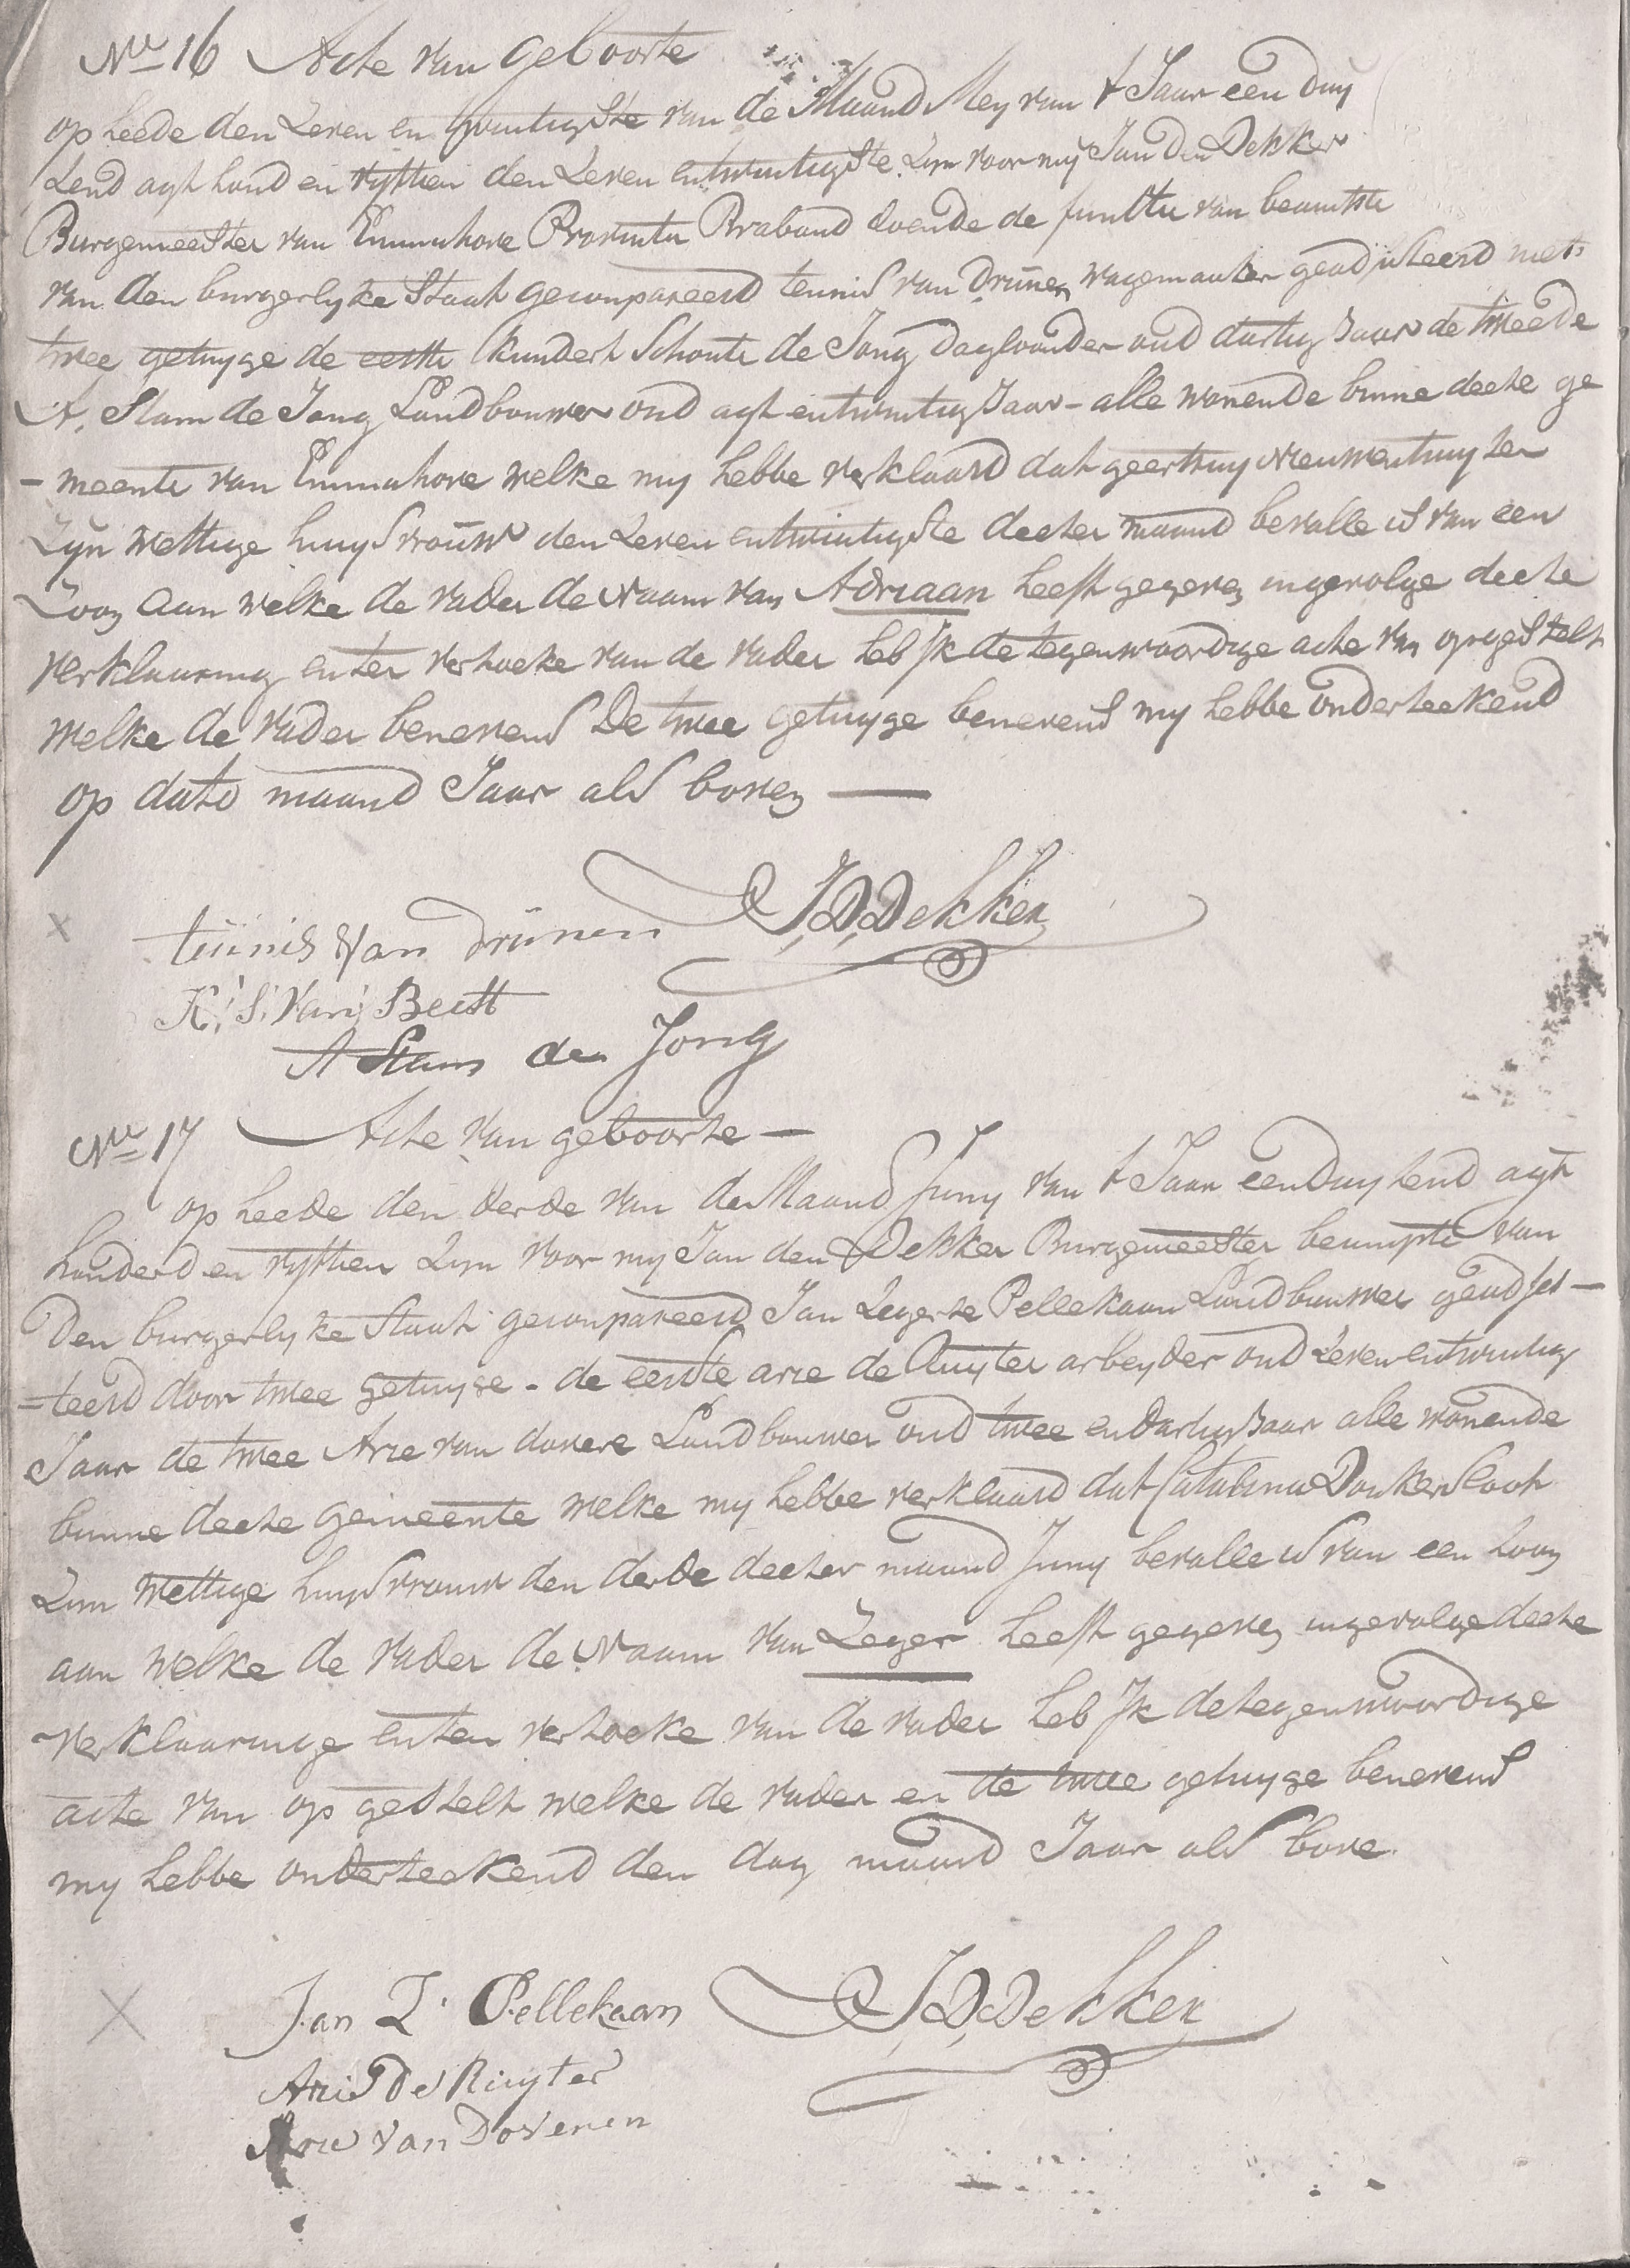 No 16 Acte van geboorte
op heede den Zeven en twintigste van de Maand Mey van t Jaar een duy
zend agt hond en vyftien den Zeven entwintigste Zyn voor my Jan den Dekker
Burgemeester van Emmichove Provintie Braband doende de funttie van beamtste
van den burgerlyke Staat gecompareerd teunis van Drunen wagemaaker geadsisteerd met
twee getuyge de eerste Schoute de Jong daglooonder oud dartig Jaar de tweede
A. Stam de Jong Landbouwer oud agt entwintig Jaar - alle wonende binne deeze ge
- meente van Emmichove welke my hebbe verklaard dat geertruy Nieuwenhuyzen
Zyn wettige huysvrouw den Zeven entwintigste deezer maand bevalle is van een
Zoon aan welke de vader de Naam van Adriaan heeft gegeven ingevolge deeze
verklaaring enter verzoeke van de vader heb Jk de tegenwoordige acte van opgestelt
welke de vader benevens De twee getuyge benevens my hebbe onderteekend
op dato maand Jaar als boven —
J,D,Dekker
teunis Van Drunen
K. S. Van Beest
A Stam de Jong
No 17 Acte van geboorte —
op heede den derde van de Maand Juny van t Jaar een Duyzend agt
honderd en vyftien Zyn voor my Jan den Dekker Burgemeester beampte van
Den burgerlyke Staat gecompareerd Jan Zegerse Pellekaan Landbouwer geadsis —
- teerd door twee getuyge - de eerste arie de Ruyter arbeyder oud Zeven entwintig
Jaar de twee Arie van dovere Landbouwer oud twee en dartig Jaar alle wonende
binne deeze gemeente welke my hebbe verklaard dat Catalina Donkersloot
Zyn wettige huysvrouw den derde deezer maand Juny bevalle is van een Zoon
aan welke de vader de Naam van Zeger heeft gegeven ingevolge deeze
verklaaringe enten verzoeke van de vader heb Jk de tegenwoordige
acte van op gestelt welke de vader en de twee getuyge benevens
my hebbe onderteekend den dag maand Jaar als bove
J,D,Dekker
Jan Z. Pellekaan
Arie De Ruyter
Arie Van Doveren